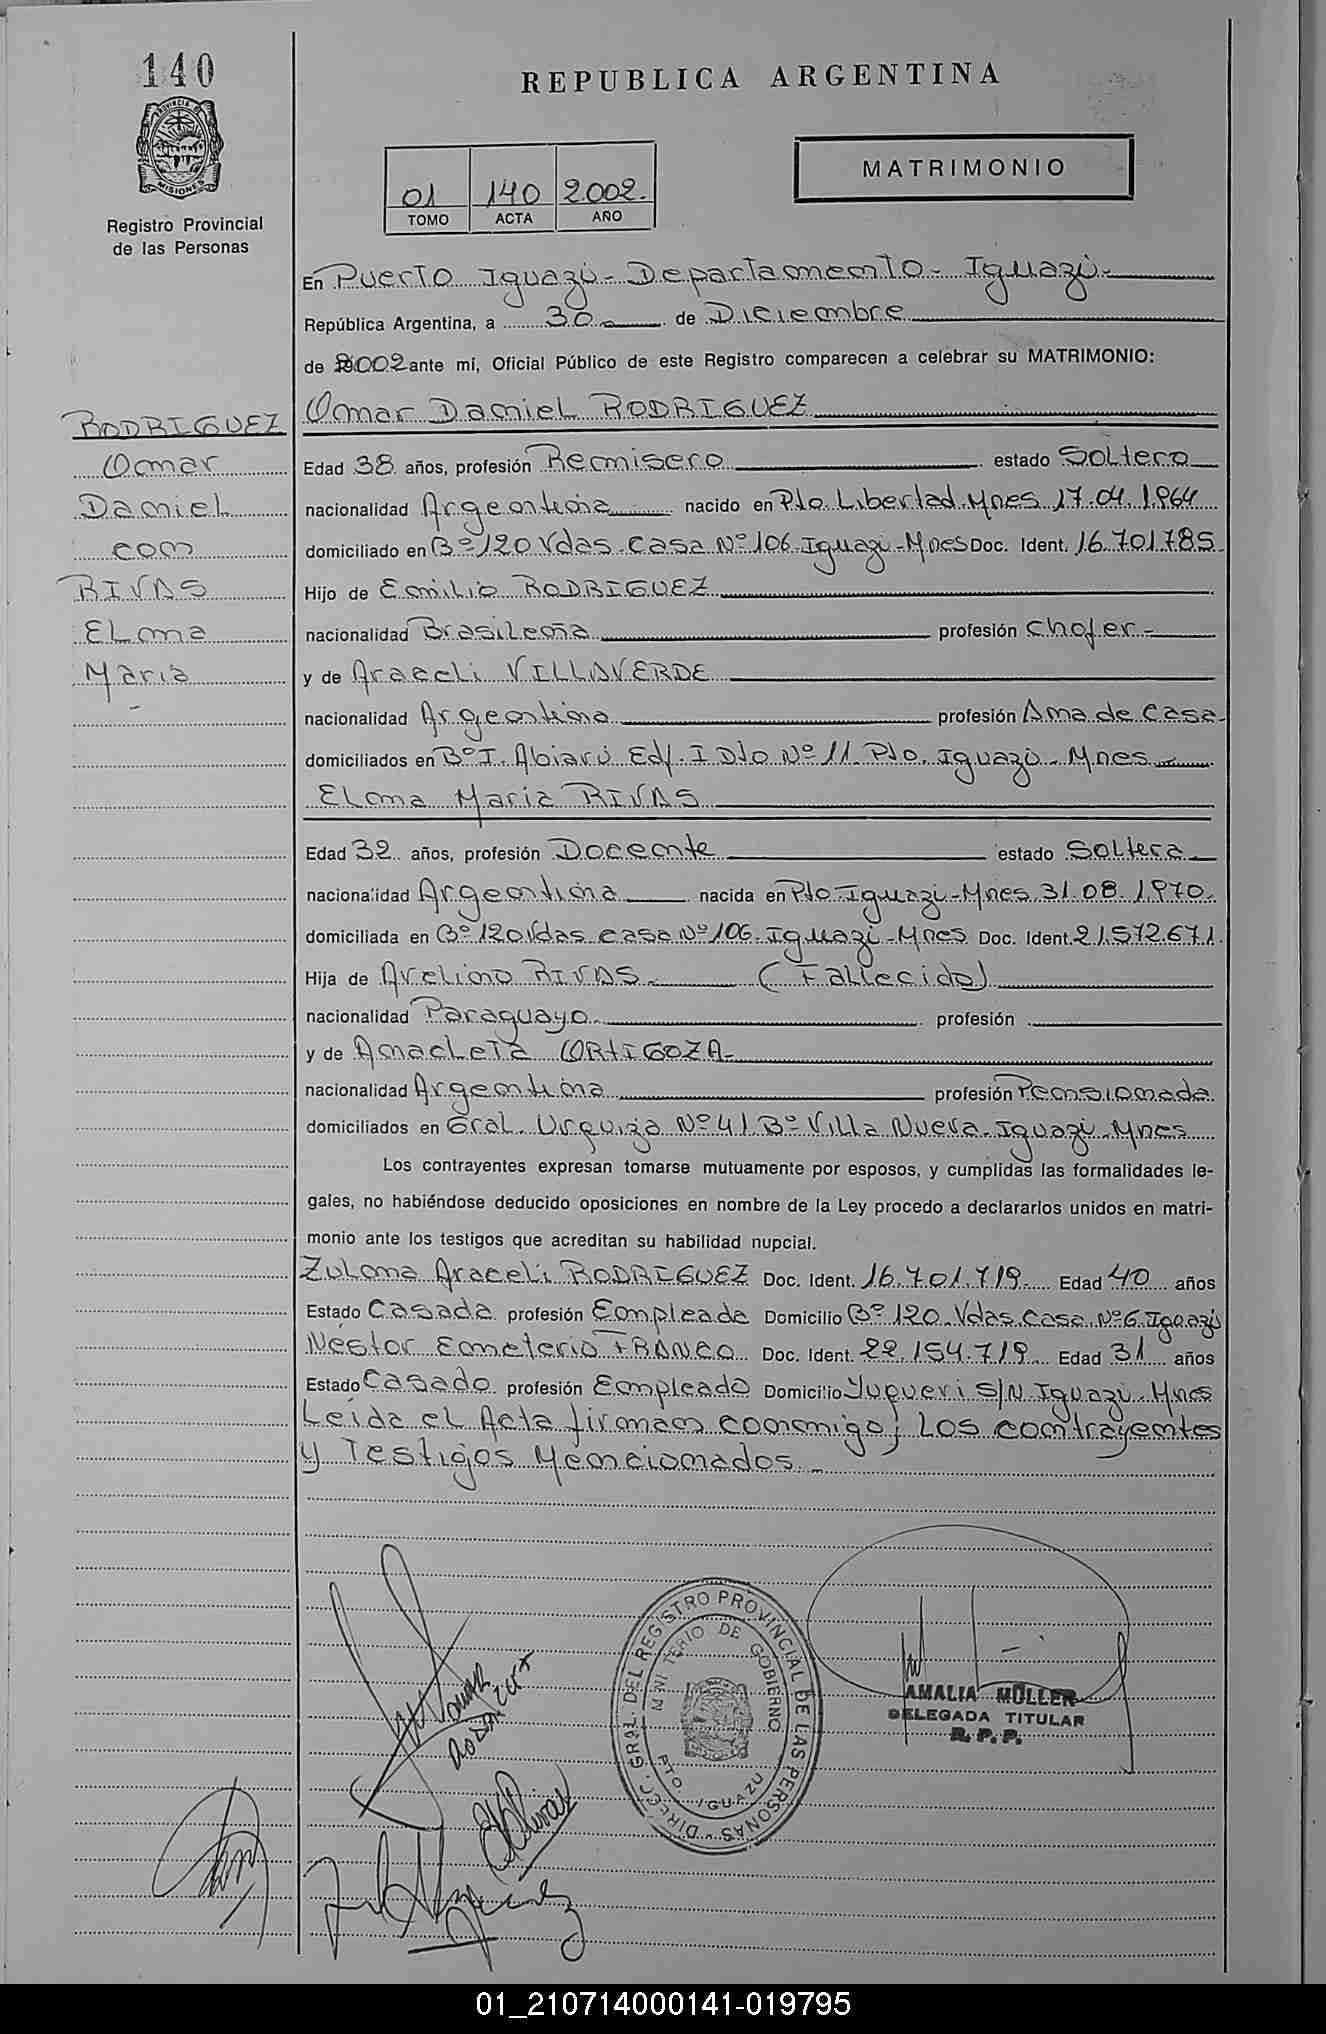 140
REPUBLICA ARGENTINA
PROVINCIA DE
MISIONES
Registro Provincial
de las Personas
MATRIMONIO
01 140 2.002.
TOMO ACTA AÑO
En Puerto Iguazú - Departamento - Iguazú -
República Argentina, a 30 de Diciembre
de 2002 ante mí, Oficial Público de este Registro comparecen a celebrar su MATRIMONIO:
Omar Daniel RODRIGUEZ
RODRIGUEZ
Omar
Daniel
con
RIVAS
Elma
Maria
Edad 38 años, profesión Remisero estado Soltero
nacionalidad Argentina nacido en Pto. Libertad. Mnes 17.04.1964
domiciliado en Bº 120 Vdas. Casa Nº 106. Iguazú - Mnes Doc. Ident. 16.701.785
Hijo de Emilio RODRIGUEZ
nacionalidad Brasileña profesión Chofer -
y de Araceli VILLAVERDE
nacionalidad Argentina profesión Ama de Casa -
domiciliados en Bº I. Abiarú Edf. I Dto Nº 11. Pto. Iguazú - Mnes
Elma Maria RIVAS
Edad 32 años, profesión Docente estado Soltera
nacionalidad Argentina nacida en Pto. Iguazú - Mnes 31.08.1970.
domiciliada en Bº 120 Vdas Casa Nº 106. Iguazú - Mnes Doc. Ident. 21.572.671.
Hija de Avelino RIVAS - (Fallecido)
nacionalidad Paraguayo - profesión
y de Anacleta ORTIGOZA -
nacionalidad Argentina profesión Pensionada
domiciliados en Gral. Urquiza Nº 41 Bº Villa Nueva. Iguazú. Mnes
Los contrayentes expresan tomarse mutuamente por esposos, y cumplidas las formalidades le-
gales, no habiéndose deducido oposiciones en nombre de la Ley procedo a declararlos unidos en matri-
monio ante los testigos que acreditan su habilidad nupcial.
Zulma Araceli RODRIGUEZ Doc. Ident. 16.701.719 Edad 40 años
Estado Casada profesión Empleada Domicilio Bº 120 Vdas. Casa Nº 6 Iguazú
Néstor Emeterio FRANCO Doc. Ident. 22.154.719 Edad 31 años
Estado Casado profesión Empleado Domicilio Yuqueri S/N Iguazú - Mnes
Leída el Acta firman conmigo; Los contrayentes
y Testigos Mencionados. -
DIREC. GRAL. DEL REGISTRO PROVINCIAL DE LAS PERSONAS
MINISTERIO DE GOBIERNO
PTO. IGUAZU
AMALIA MÜLLER
DELEGADA TITULAR
R. P. P.
01_210714000141-019795